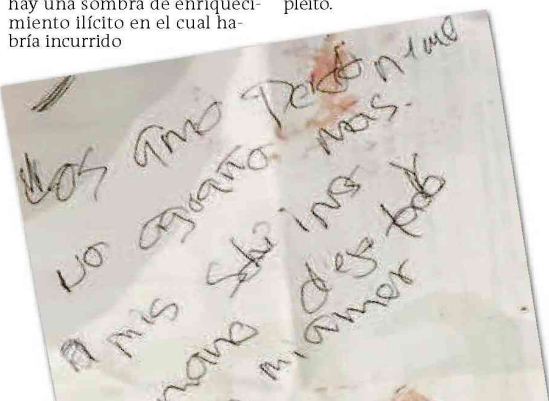 hay una sombra de enriqueci-
miento ilícito en el cual ha-
bría incurrido
pleito.
Los amo Perdonime
no aguanto mas.
A mis sobrinos
des todo
mi amor